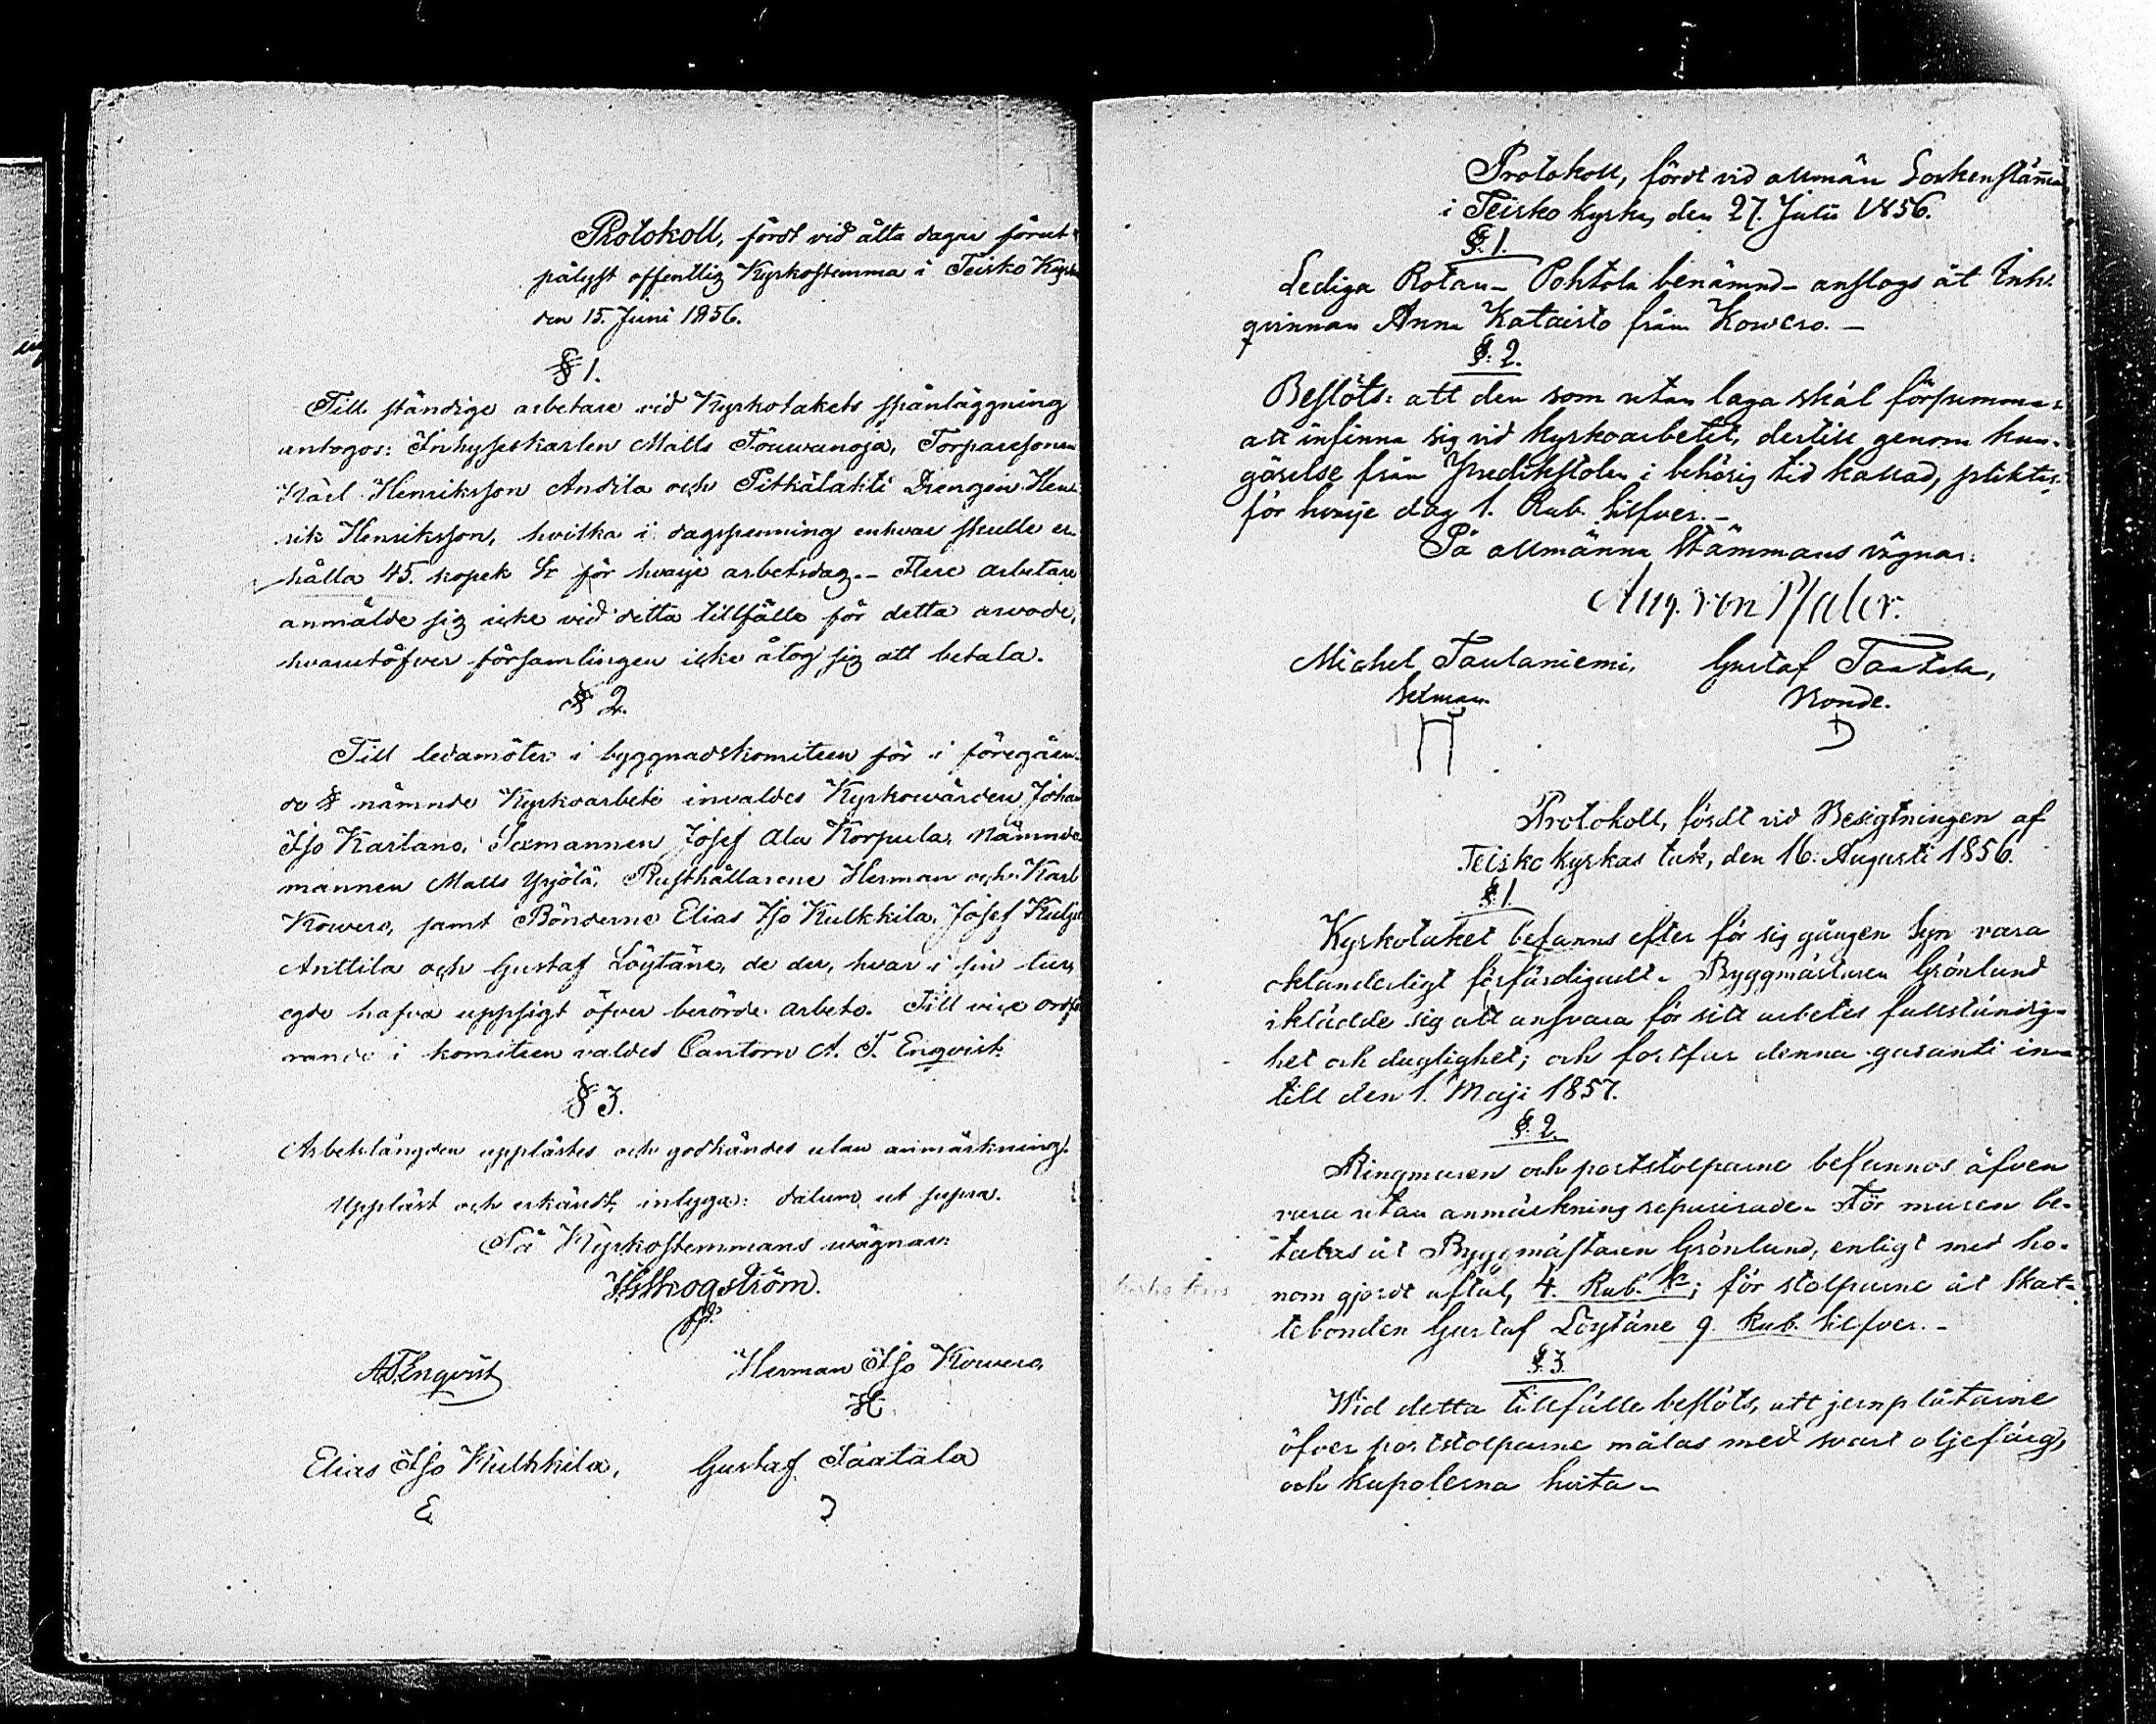 Protokoll, fördt vid åtta dagar förut
pålyst offentlig Kyrkostemma i Teisko Kyrka
den 15. Juni 1856.
§ 1.
Till ständige arbetare vid Kyrkotakets spånläggning
antogos: Inhyseskarlen Matts Touwanoja, Torparesonen
Karl Henriksson Andila och Pitkälahti Drengen Hen-
rik Henriksson, hvilka i dagspenning enhvar skulle er-
hålla 45. kopek Sr för hvarje arbetsdag. - Flere arbetare
anmälde sig icke vid detta tillfälle för detta arvode,
hvarutöfver församlingen icke åtog sig att betala.
§ 2.
Till ledamöter i byggnadskomiteen för i föregåen-
de § nämnde Kyrkoarbete invaldes Kyrkowärden Johan
Iso Kartano, Sexmannen Josef Ala Korpula, Nämnde-
mannen Matts Yrjölä, Rusthållarene Herman och Karl
Kowero, samt Bönderne Elias Iso Kulkkila, Josef Kulju
Anttila och Gustaf Löytäne, de der, hvar i sin tur,
egde hafva uppsigt öfver berörde arbete. Till vice ordfö-
rande i komiteen valdes Cantorn A. T. Enqvist.
§ 3.
Arbetslängden upplästes och godkändes utan anmärkning.
Uppläst och erkändt, intyga: datum ut supra.
På Kyrkostemmans wägnar:
Skogström.
A.T.Enqvist
Herman Iso Kowero,
H.
Elias Iso Kulkkila, Gustaf Taatala
E
Protokoll, fördt vid allmän Sockenstämma
i Teisko kyrka, den 27. Julii 1856.
§. 1.
Lediga Rotan - Pohtola benämnd - anslogs åt Inh.
qvinnan Anna Kataisto från Kowero. -
§. 2.
Beslöts: att den som utan laga skäl försumma[r]
att infinna sig vid kyrkoarbetet, dertill genom kun-
görelse från Predikstolen i behörig tid kallad, pliktar
för hvarje dag 1. Rub. Silfver. -
På allmänna Stämmans vägnar:
Aug. von Pfaler.
Michel Taulaniemi, Gustaf Taatala,
Sexman. Bonde.
Protokoll, fördt vid Besigtningen af
Teisko kyrkas tak, den 16. Augusti 1856.
§. 1.
Kyrkotaket befanns efter för sig gången Syn vara
oklanderligt förfärdigadt. Byggmästaren Grönlund
iklädde sig att ansvara för sitt arbetes fullständig-
het och duglighet; och fortfar denna garanti in-
till den 1. Maji 1857.
§. 2.
Ringmuren och portstolparne befunnos äfven
vara utan anmärkning reparerade. För muren be-
talas åt Byggmästaren Grönlund, enligt med ho-
nom gjordt aftal, 4. Rub. Sr; för stolparne åt Skat-
tebonden Gustaf Löytäne 9. Rub. Silfver. -
§. 3.
Wid detta tillfälle beslöts, att jernplåtarne
öfver portstolparne målas med svart oljefärg,
och kupolerna hvita -